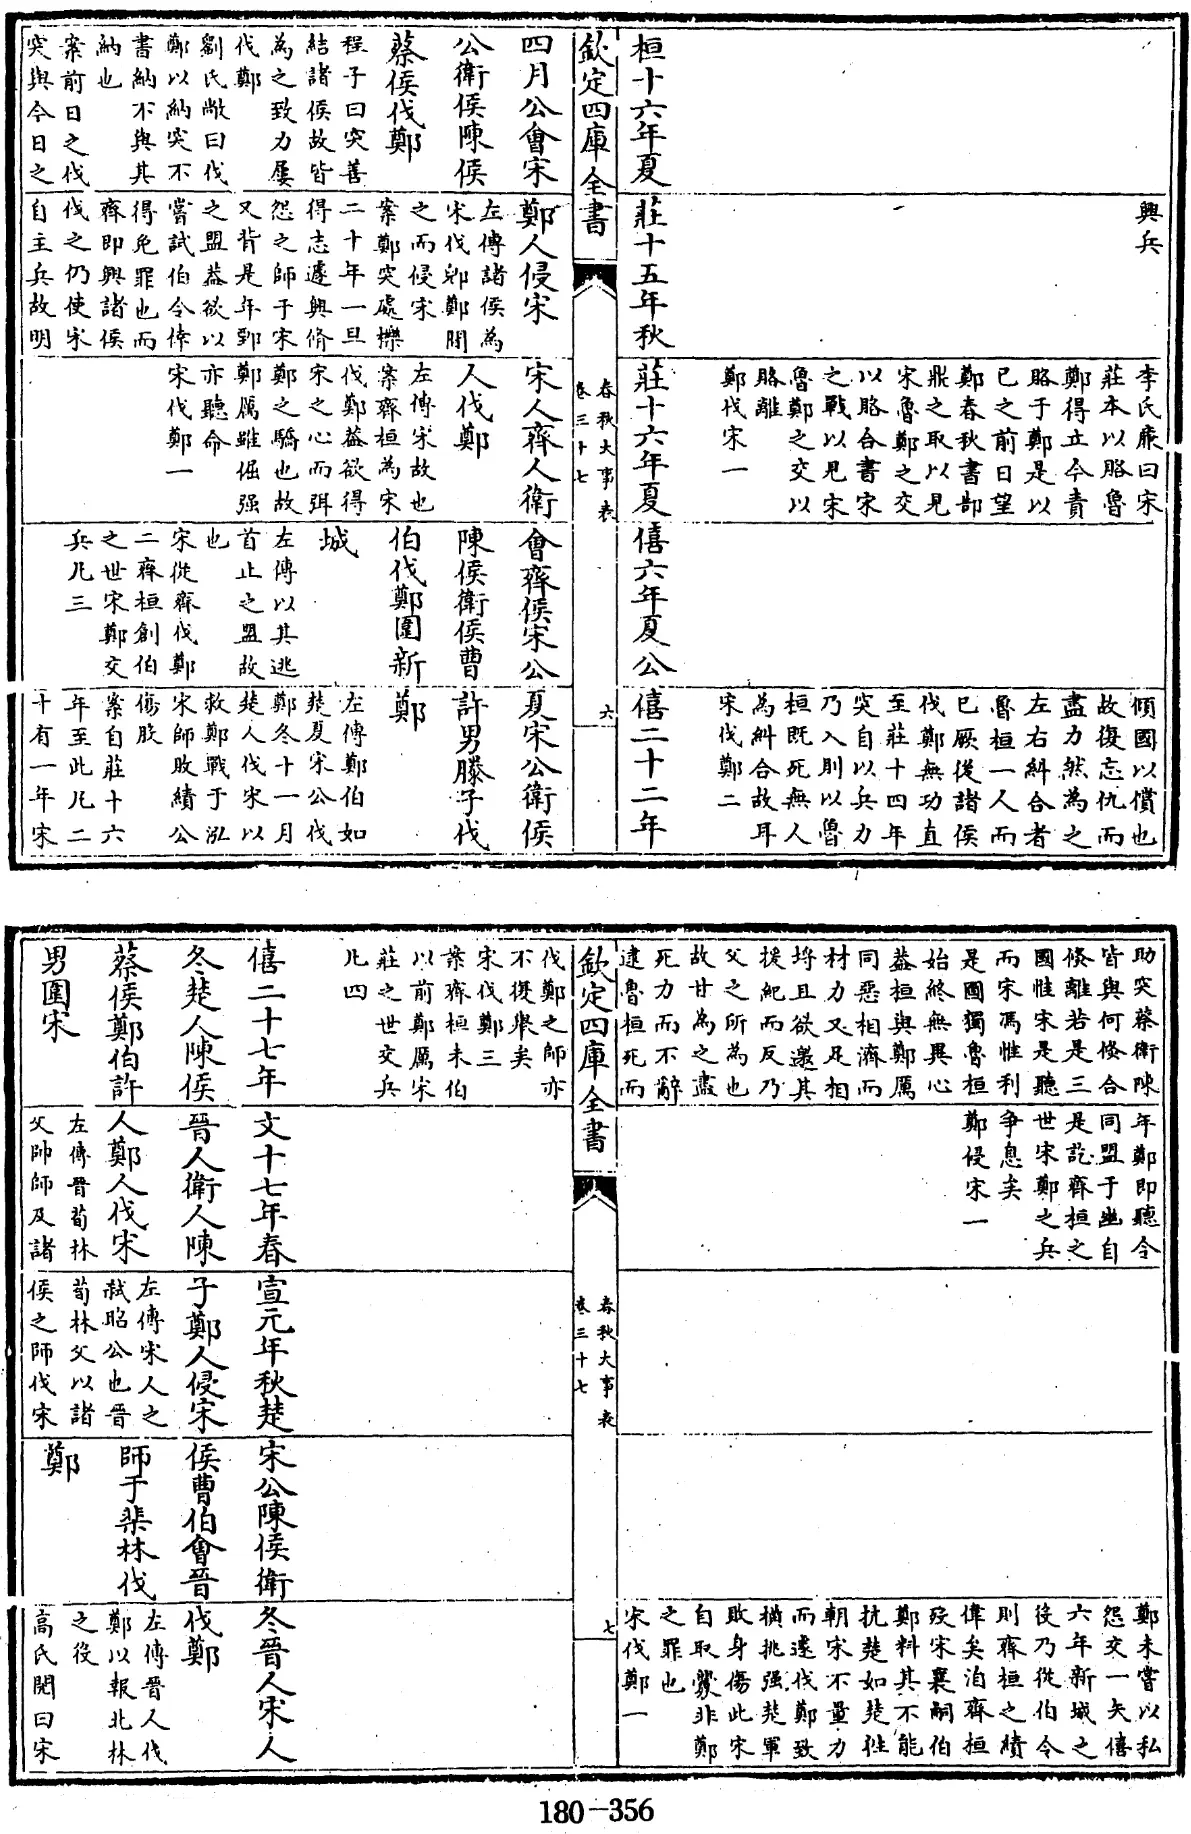 桓十六年夏
興兵
莊十五年秋
李氏廉曰宋
莊本以賂魯
鄭得立今責
賂于鄭是以
已之前日望
鄭春秋書郜
鼎之取以見
宋魯鄭之交
以賂合書宋
之戰以見宋
魯鄭之交以
賂離
鄭伐宋一
莊十六年夏
僖六年夏公
傾國以償也
故復忘仇而
盡力然為之
左右糾合者
魯桓一人而
已厥後諸侯
伐鄭無功直
至莊十四年
突自以兵力
乃入則以魯
桓既死無人
為糾合故耳
宋伐鄭二
僖二十二年
欽定四庫全書
春秋大事表
卷三十七
六
四月公會宋
公衛侯陳侯
蔡侯伐鄭
程子曰突善
結諸侯故皆
為之致力屢
伐鄭
劉氏敞曰伐
鄭以納突不
書納不與其
納也
案前日之伐
突與今日之
鄭人侵宋
左傳諸侯為
宋伐郳鄭間
之而侵宋
案鄭突處櫟
二十年一旦
得志遽興脩
怨之師于宋
又背是年鄄
之盟葢欲以
嘗試伯令倖
得免罪也而
齊即興諸侯
伐之仍使宋
自主兵故明
宋人齊人衛
人伐鄭
左傳宋故也
案齊桓為宋
伐鄭葢欲得
宋之心而弭
鄭之驕也故
鄭厲雖倔强
亦聽命
宋伐鄭一
會齊侯宋公
陳侯衛侯曹
伯伐鄭圍新
城
左傳以其逃
首止之盟故
也
宋從齊伐鄭
二齊桓創伯
之世宋鄭交
兵凡三
夏宋公衛侯
許男滕子伐
鄭
左傳鄭伯如
楚夏宋公伐
鄭冬十一月
楚人伐宋以
救鄭戰于泓
宋師敗績公
傷股
案自莊十六
年至此凡二
十有一年宋
助突蔡衛陳
皆與何倏合
倏離若是三
國惟宋是聽
而宋馮惟利
是圖獨魯桓
始終無異心
葢桓與鄭厲
同惡相濟而
材力又足相
埒且欲邀其
援紀而反乃
父之所為也
故甘為之盡
死力而不辭
逮魯桓死而
年鄭即聽令
同盟于幽自
是訖齊桓之
世宋鄭之兵
争息矣
鄭侵宋一
鄭未嘗以私
怨交一矢僖
六年新城之
役乃從伯令
則齊桓之績
偉矣洎齊桓
歿宋襄嗣伯
鄭料其不能
抗楚如楚徃
朝宋不量力
而遽伐鄭致
橫挑强楚軍
敗身傷此宋
自取釁非鄭
之罪也
宋伐鄭一
欽定四庫全書
春秋大事表
卷三十七
七
伐鄭之師亦
不復舉矣
宋伐鄭三
案齊桓未伯
以前鄭厲宋
莊之世交兵
凡四
僖二十七年
冬楚人陳侯
蔡侯鄭伯許
男圍宋
文十七年春
晉人衛人陳
人鄭人伐宋
左傳晉荀林
父帥師及諸
宣元年秋楚
子鄭人侵宋
左傳宋人之
弑昭公也晉
荀林父以諸
侯之師伐宋
宋公陳侯衛
侯曹伯會晉
師于棐林伐
鄭
冬晉人宋人
伐鄭
左傳晉人伐
鄭以報北林
之役
高氏閌曰宋
180-356